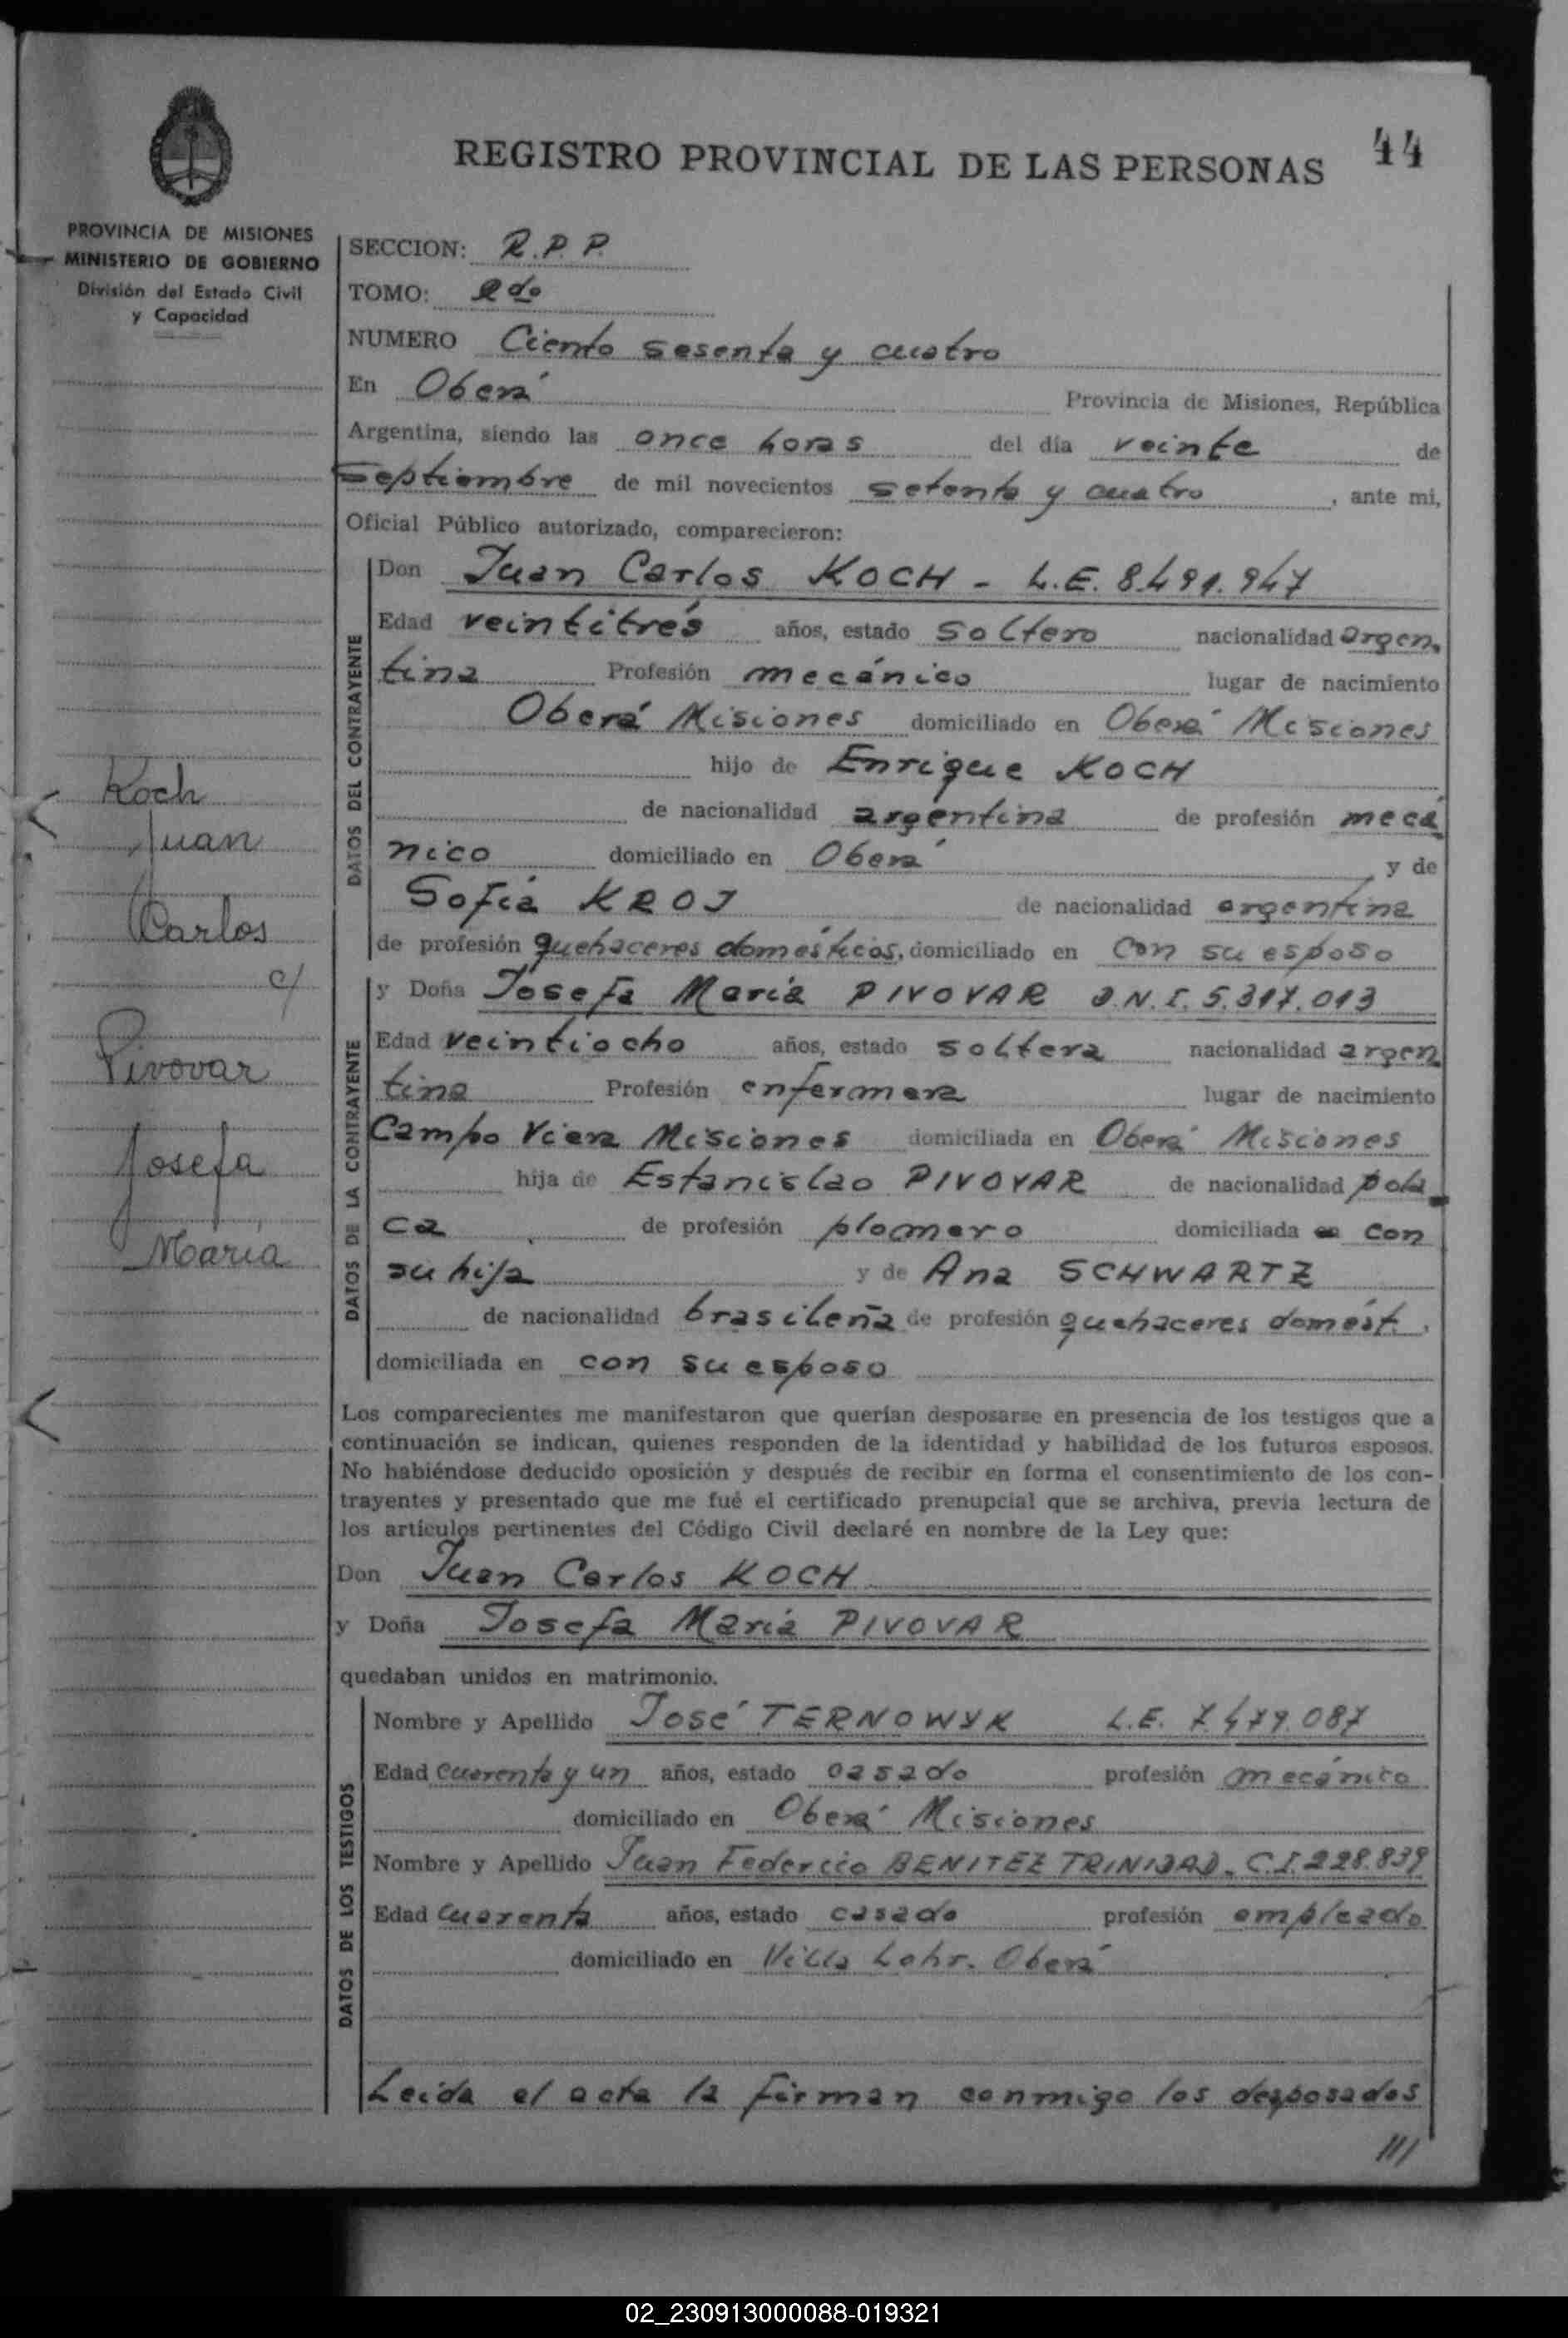 REGISTRO PROVINCIAL DE LAS PERSONAS
44
PROVINCIA DE MISIONES
MINISTERIO DE GOBIERNO
División del Estado Civil
y Capacidad
SECCION: R.P.P.
TOMO: 2do
NUMERO Ciento sesenta y cuatro
En Oberá Provincia de Misiones, República
Argentina, siendo las once horas del día veinte de
septiembre de mil novecientos setenta y cuatro, ante mi,
Oficial Público autorizado, comparecieron:
DATOS DEL CONTRAYENTE
Don Juan Carlos KOCH - L.E. 8.491.947
Edad veintitrés años, estado soltero nacionalidad argen
tina Profesión mecánico lugar de nacimiento
Oberá Misiones domiciliado en Oberá Misiones
hijo de Enrique KOCH
de nacionalidad argentina de profesión mecá
nico domiciliado en Oberá, y de
Sofía KROJ de nacionalidad argentina
de profesión quehaceres domésticos, domiciliado en con su esposo
Koch
Juan
Carlos
c/
Pivovar
Josefa
María
DATOS DE LA CONTRAYENTE
y Doña Josefa María PIVOVAR D.N.I. 5.317.013
Edad veintiocho años, estado soltera nacionalidad argen
tina Profesión enfermera lugar de nacimiento
Campo Viera Misiones domiciliada en Oberá Misiones
hija de Estanislao PIVOVAR de nacionalidad pola
ca de profesión plomero domiciliada en con
su hija y de Ana SCHWARTZ
de nacionalidad brasileña de profesión quehaceres domést.
domiciliada en con su esposo
Los comparecientes me manifestaron que querían desposarse en presencia de los testigos que a
continuación se indican, quienes responden de la identidad y habilidad de los futuros esposos.
No habiéndose deducido oposición y después de recibir en forma el consentimiento de los con-
trayentes y presentado que me fué el certificado prenupcial que se archiva, previa lectura de
los artículos pertinentes del Código Civil declaré en nombre de la Ley que:
Don Juan Carlos KOCH
y Doña Josefa María PIVOVAR
quedaban unidos en matrimonio.
DATOS DE LOS TESTIGOS
Nombre y Apellido José TERNOWYK L.E. 7.479.087
Edad cuarenta y un años, estado casado profesión mecánico
domiciliado en Oberá Misiones
Nombre y Apellido Juan Federcio BENITEZ TRINIDAD - C.I. 228.839
Edad cuarenta años, estado casado profesión empleado
domiciliado en Villa Lohr. Oberá
Leída el acta la firman conmigo los desposados
///
02_230913000088-019321